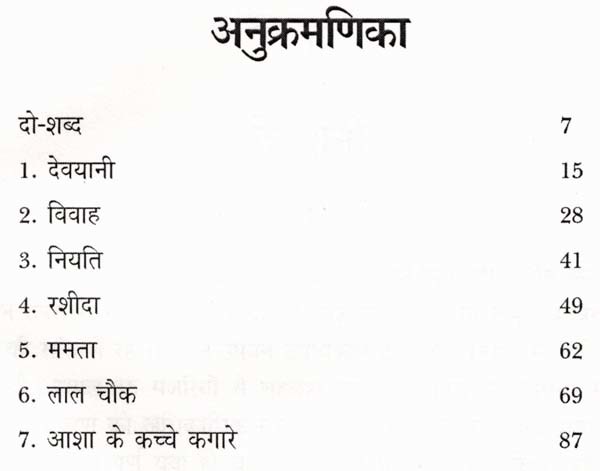 अनुक्रमणिका
दो-शब्द 7
1. देवयानी 15
2. विवाह 28
3. नियति 41
4. रशीदा 49
5. ममता 62
6. लाल चौक 69
7. आशा के कच्चे कगारे 87